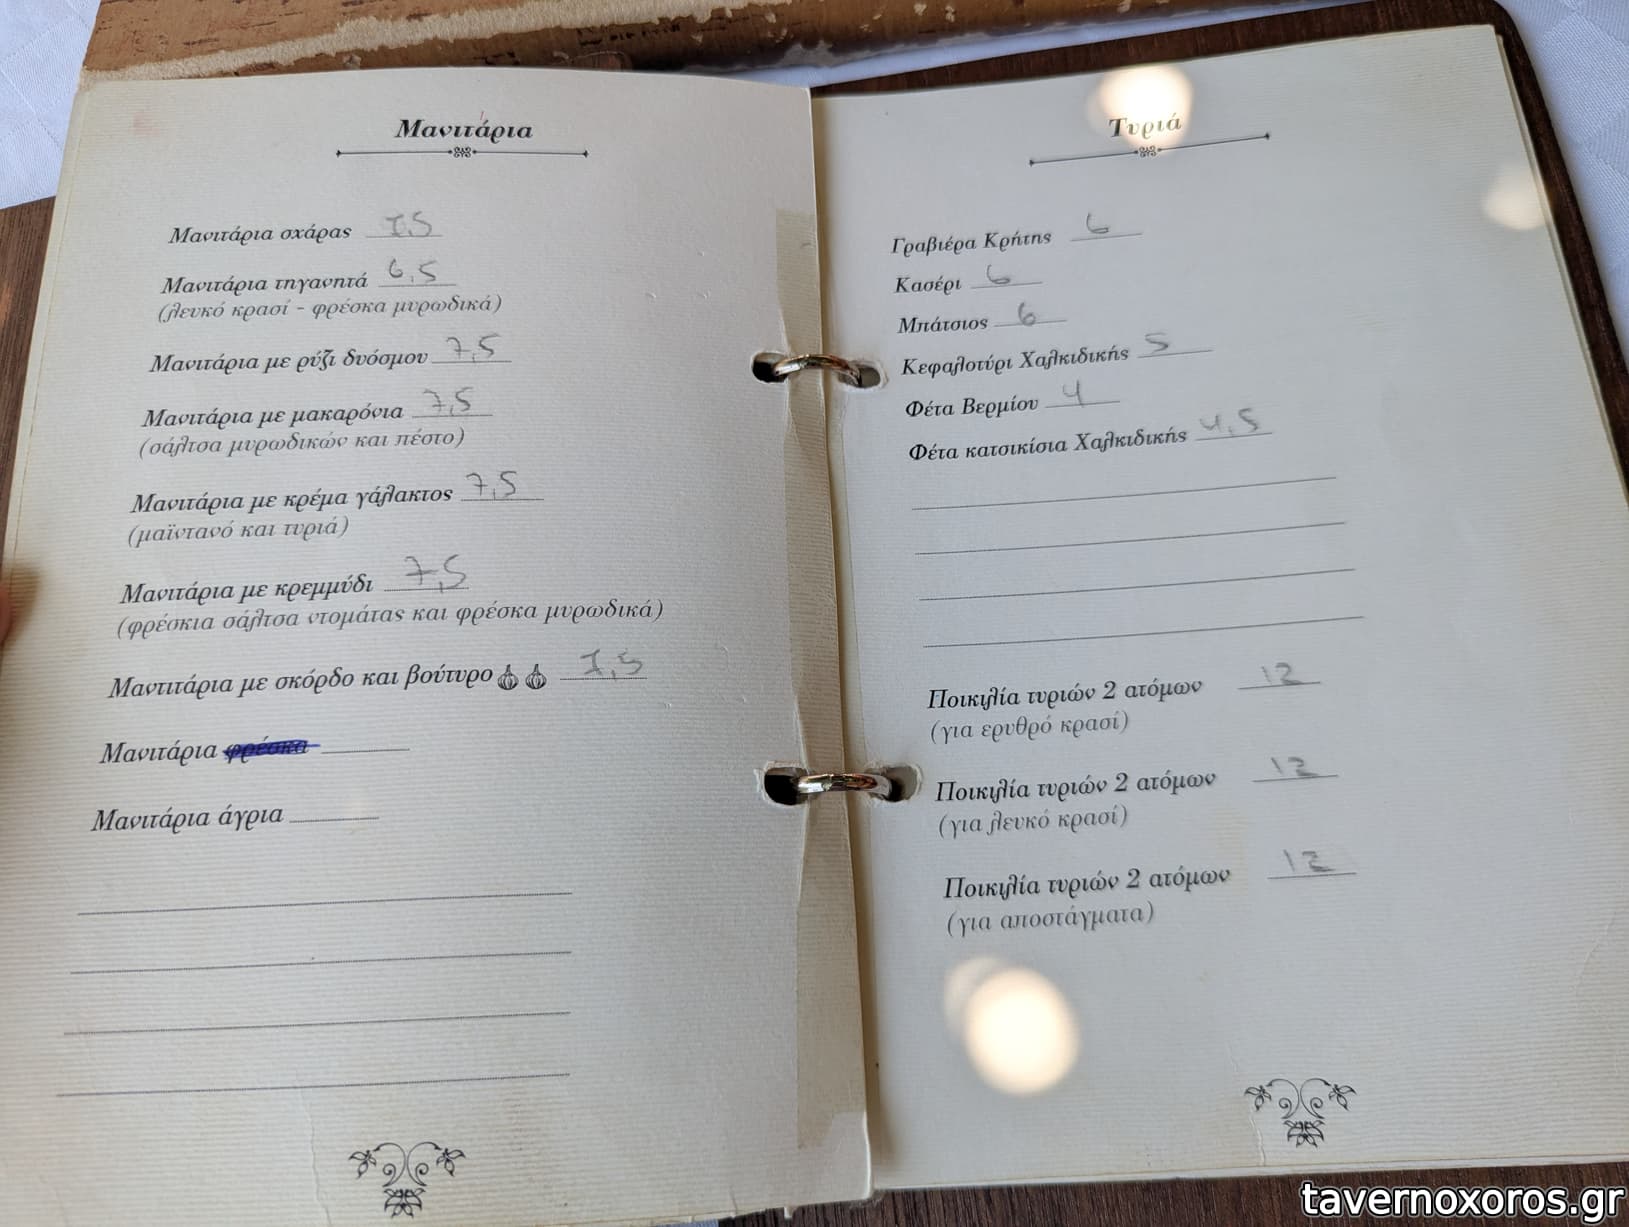 Μανιτάρια
Μανιτάρια σχάρας 7,5
Μανιτάρια τηγανητά 6,5
(λευκό κρασί - φρέσκα μυρωδικά)
Μανιτάρια με ρύζι δυόσμου 7,5
Μανιτάρια με μακαρόνια 7,5
(σάλτσα μυρωδικών και πέστο)
Μανιτάρια με κρέμα γάλακτος 7,5
(μαϊντανό και τυριά)
Μανιτάρια με κρεμμύδι 7,5
(φρέσκια σάλτσα ντομάτας και φρέσκα μυρωδικά)
Μαντιτάρια με σκόρδο και βούτυρο 7,5
Μανιτάρια φρέσκα
Μανιτάρια άγρια
Τυριά
Γραβιέρα Κρήτης 6
Κασέρι 6
Μπάτσιος 6
Κεφαλοτύρι Χαλκιδικής 5
Φέτα Βερμίου 4
Φέτα κατσικίσια Χαλκιδικής 4,5
Ποικιλία τυριών 2 ατόμων 12
(για ερυθρό κρασί)
Ποικιλία τυριών 2 ατόμων 12
(για λευκό κρασί)
Ποικιλία τυριών 2 ατόμων 12
(για αποστάγματα)
tavernoxoros.gr